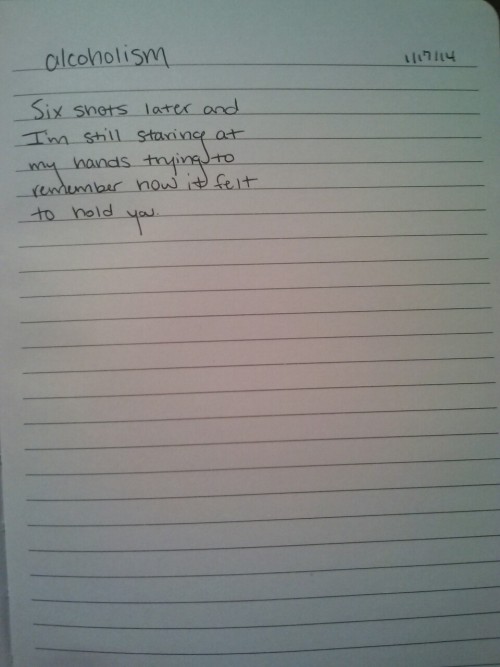 alcoholism
1/17/14
Six shots later and
I'm still staring at
my hands trying to
remember how it felt
to hold you.